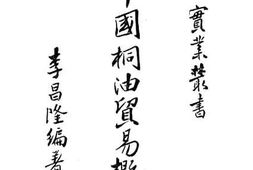 實業叢書
中國桐油貿易概
李昌隆編著